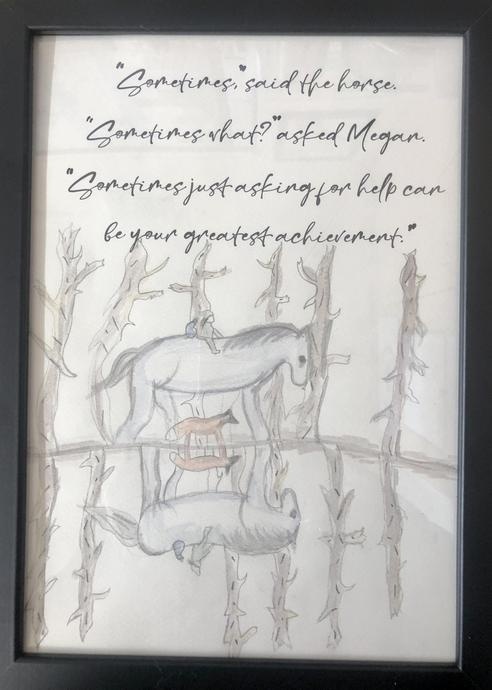 "Sometimes," said the horse.
"Sometimes what?" asked Megan.
"Sometimes just asking for help can
be your greatest achievement."